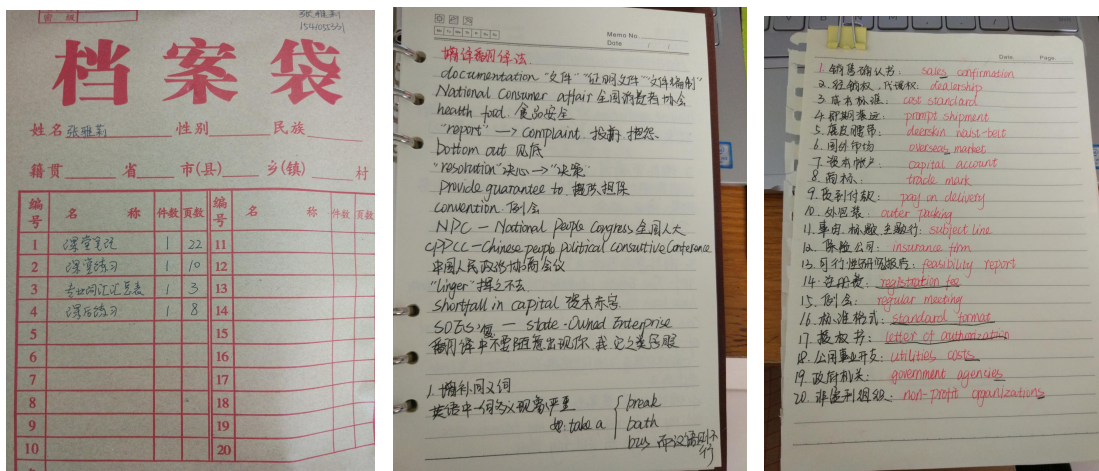 张雅莉
1541055331
档案袋
姓名 张雅莉 性别 民族
籍贯 省 市(县) 乡(镇) 村
编号 名 称 件数 页数 编号 名 称 件数 页数
1 课堂笔记 1 22 11
2 课堂练习 1 10 12
3 专业词汇汇总表 1 3 13
4 课后练习 1 8 14
5 15
6 16
7 17
8 18
9 19
10 20
Mo Tu We Th Fr Sa Su
Memo No.
Date / /
增译翻译法
documentation "文件" "证明文件" "文件编制"
National Consumer affair 全国消费者协会
health food 食品安全
"report" —> complaint. 投诉 抱怨
bottom out 见底
"resolution" 决心—>"决策"
provide guarantee to 提供担保
convention 例会
NPC — National People Congress 全国人大
CPPCC—Chinese people political consultive Conference
中国人民政治协商会议
"linger" 挥之不去
shortfall in capital 资本赤字
SOEs — state-Owned Enterprise
翻译中不要随意出现你 我 它之类
1. 增补同义词
英语中一词多义现象严重
如: take a break
bath
bus 而汉语则不行
Date. Page.
1. 销售确认书: sales confirmation
2. 经销权、代理权: dealership
3. 成本标准: cost standard
4. 即期装运 prompt shipment
5. 鹿皮腰带: deerskin waist-belt
6. 国外市场 overseas market
7. 资本帐户: capital account
8. 商标: trade mark
9. 货到付款: pay on delivery
10. 外包装: outer packing
11. 事由、标题、主题行: subject line
12. 保险公司: insurance firm
13. 可行性研究报告: feasibility report
14. 注册费: registration fee
15. 例会: regular meeting
16. 标准格式: standard format
17. 授权书: letter of authorization
18. 公用事业开支: utilities costs
19. 政府机关: government agencies
20. 非盈利组织: non-profit organizations